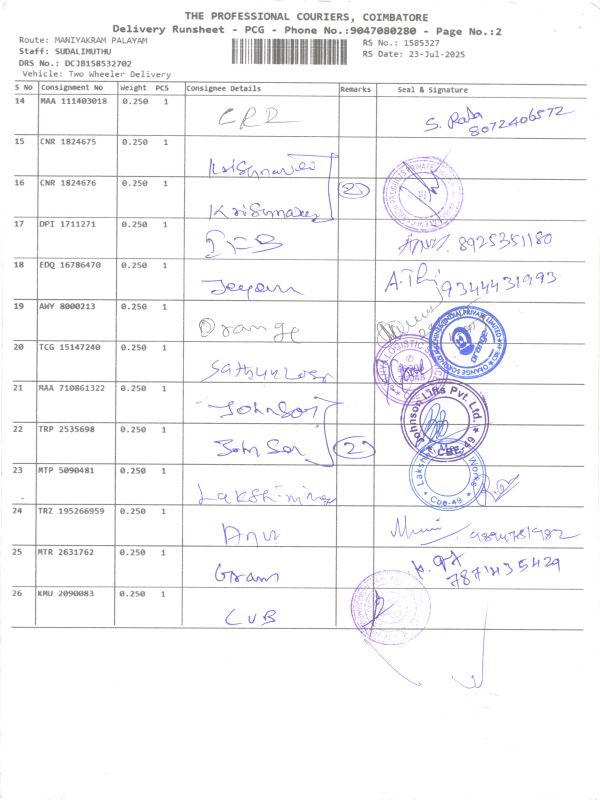 THE PROFESSIONAL COURIERS, COIMBATORE
Delivery Runsheet - PCG - Phone No.:9047080280 - Page No.:2
Route: MANIYAKRAM PALAYAM
RS No.: 1585327
Staff: SUDALIMUTHU
RS Date: 23-Jul-2025
DRS No.: DCJB158532702
Vehicle: Two Wheeler Delivery
S No Consignment No Weight PCS Consignee Details Remarks Seal & Signature
14 MAA 111403018 0.250 1 CRD S. Raja
8072406572
15 CNR 1824675 0.250 1
16 CNR 1824676 0.250 1 2
17 DPI 1711271 0.250 1 8925351180
18 EDQ 16786470 0.250 1 Jeyam 9344431993
19 AWY 8000213 0.250 1 Orange
orange
20 TCG 15147240 0.250 1
21 MAA 710861322 0.250 1 Johnson
Johnson Lifts Pvt. Ltd.
CBE-49
22 TRP 2535698 0.250 1 Johnson 2
23 MTP 5090481 0.250 1
Works
CBE-49
24 TRZ 195266959 0.250 1 Anu 9894781982
25 MTR 2631762 0.250 1 Gram
7871435429
26 KMU 2090083 0.250 1 CUB